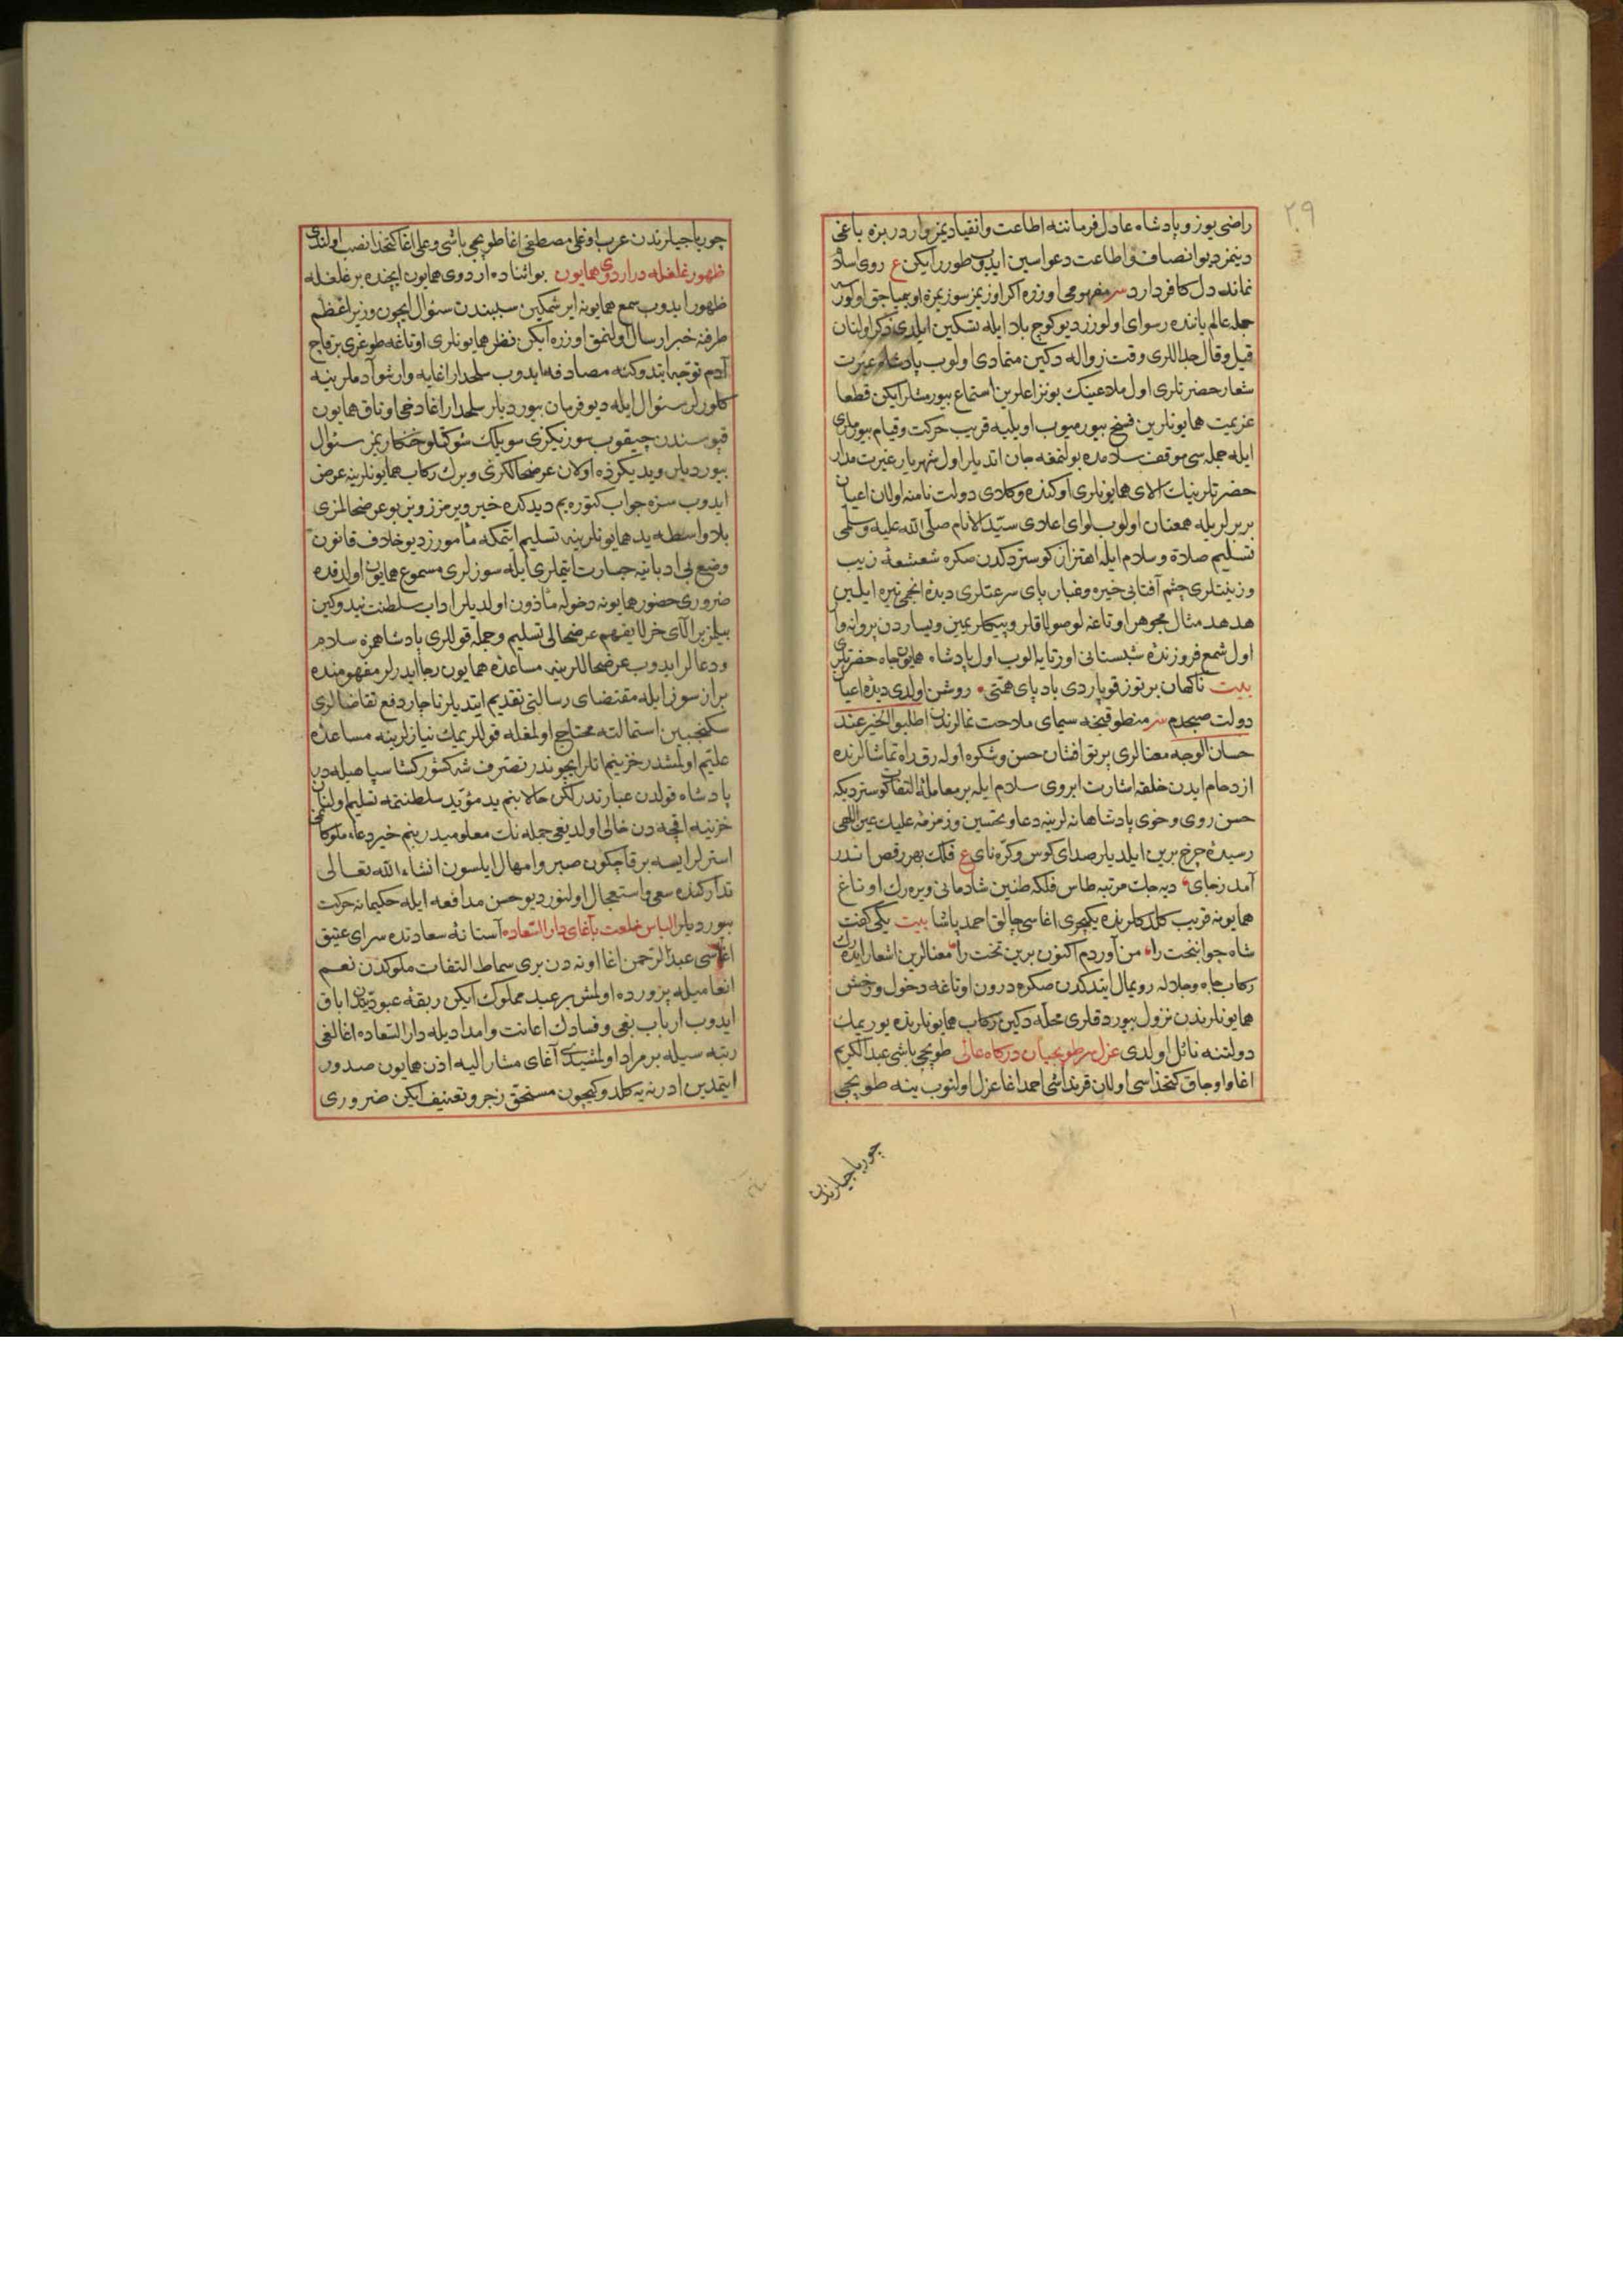 ٢٩
راضی یوز و پادشاه عادل فرماننه اطاعت و انقیادیمز وار در بزه باغی
دینمز دیو انصاف و اطاعت دعواسین ایدوب طورر ایکن ع روی اسلام
نماند دل کافر دارد سر مفهومی اوزره اکر اوزیمز سوزیمزه اویمیاجق اولورسه
جمله عالم یاننده رسوای اولورز دیو کوج بلا ایله تسکین ایلدی ذکر اولنان
قیل و قال جداللری وقت زواله دکین متمادی اولوب پادشاه غیرت
شعار حضرتلری اول ملاعینک بو نزاعلرین استماع بیورمشلر ایکن قطعا
عزیمت همایونلرین فسخ بیورمیوب اویلیه قریب حرکت و قیام بیورملری
ایله جمله سی موقف سلامده بولنمغه جان اتدیلر اول شهریار غیرت مدار
حضرتلرینک الای همایونلری اوکنده وکلای دولت نامنه اولان اعیان
بربرلریله همعنان اولوب لوای اعلای سید الانام صلی الله علیه وسلمی
تسلیم صلاة وسلام ایله اهتزاز کوستردکدن صکره شعشعۀ زیب
وزینتلری چشم آفتابی خیره و غبار پای سرعتلری دیدۀ انجمی تیره ایلین
هدهد مثال مجوهر اوتاغه لو صولاقلر و پیکلر یمین و یساردن پروانه وار
اول شمع فروزندۀ شبستانی اورتایه الوب اول پادشاه همایون جاه حضرتلری
بیت ناکهان بر توز قوپاردی باد پای همتی • روشن اولدی دیدۀ اعیان
دولت صبحدم سر منطوقنجه سیمای ملاحت نمالرندن اطلبوا الخیر عند
حسان الوجه معنالری پرتو افشان حسن و شکوه اوله رق راه تماشالرنده
ازدحام ایدن خلقه اشارت ابروی سلام ایله بر معاملۀ التفات کوستردیکه
حسن روی و خوی پادشاهانه لرینه دعا و تحسین و زمزمۀ علیک عین اللهی
رسیدۀ چرخ برین ایلدیلر صدای کوس و کرّه نای ع فلک بهر رقص اندر
آمد ز جای • دیه جک مرتبه طاس فلکه طنین شادمانی ویره رک اوتاغ
همایونه قریب کلدکلرنده یکیچری اغاسی چالق احمد پاشا بیت یکی کفت
شاه جوانبخت را • من آوردم اکنون برین تخت را • معنالرین اشعار ایده رک
رکاب جاه و جلاله رویمال ایتدکدن صکره درون اوتاغه دخول و رخش
همایونلرندن نزول بیوردقلری محله دکین رکاب همایونلرنده یوریمک
دولتنه نائل اولدی عزل سر طوپچیان درکاه عالی طوپچی باشی عبد الکریم
اغا و اوجاق کتخداسی اولان قرنداشی احمد اغا عزل اولنوب ینه طوپچی
چورباجیلرندن
چورباجیلرندن عرب اوغلی مصطفی اغا طوپچی باشی و علی اغا کتخدا نصب اولندی
ظهور غلغله در اردوی همایون بو اثناده اردوی همایون ایچنده بر غلغله
ظهور ایدوب سمع همایونه ایرشمکین سببندن سئوال ایچون وزیر اعظم
طرفنه خبر ارسال اولنمق اوزره ایکن نظر همایونلری اوتاغه طوغری بر قاچ
آدم توجه ایتدوکنه مصادفه ایدوب سلحدار اغایه وار شو آدملر نیه
کلورلر سئوال ایله دیو فرمان بیوردیلر سلحدار اغا دخی اوتاق همایون
قپوسندن چیقوب سوزیکزی سویلک شوکتلو خنکاریمز سئوال
بیوردیلر ویدیکزده اولان عرضحالکزی ویرک رکاب همایونلرینه عرض
ایدوب سزه جواب کتوره یم دیدکده خیر ویرمزز و بز بو عرضحالمزی
بلا واسطه ید همایونلرینه تسلیم ایتمکه مأمورز دیو خلاف قانون
وضع بی ادبانیه جسارت ایتملری ایله سوزلری مسموع همایون اولدقده
ضروری حضور همایونه دخوله مأذون اولدیلر اداب سلطنت نیدوکین
بیلمز بر الای خر لا یفهم عرضحالی تسلیم و جمله قوللری پادشاهمزه سلام
و دعالر ایدوب عرضحاللرینه مساعدۀ همایون رجا ایدرلر مفهومنده
براز سوز ایله مقتضای رسالتی تقدیم ایتدیلر ناچار دفع تقاضالری
سکنجبین استمالته محتاج اولمغله قوللریمک نیازلرینه مساعدۀ
علیتم اولمشدر خزینم انلر ایچوندر تصرف شه کشور کشا سپاهیله در
پادشاه قولدن عبارتدر لکن حالا بنم ید مؤید سلطنتمه تسلیم اولنان
خزینه اقچه دن خالی اولدیغی جمله نک معلومیدر بنم خیر دعاء ملوکانمی
استرلر ایسه بر قاچ کون صبر و امهال ایلسون انشاء الله تعالی
تدارکنده سعی و استعجال اولنور دیو حسن مدافعه ایله حکیمانه حرکت
بیوردیلر الباس خلعت بآغای دار السعاده آستانۀ سعادتده سرای عتیق
اغاسی عبد الرحمن اغا اوته دن بری سماط التفات ملوکدن نعم
انعامیله پرورده اولمش بر عبد مملوک ایکن ربقۀ عبودیتدن اباق
ایدوب ارباب بغی و فساده اعانت و امدادیله دار السعاده اغالغی
رتبه سیله بر مراد اولمشیدی آغای مشار الیه اذن همایون صدور
ایتمدین ادرنه یه کلدوکیچون مستحق زجر و تعنیف ایکن ضروری